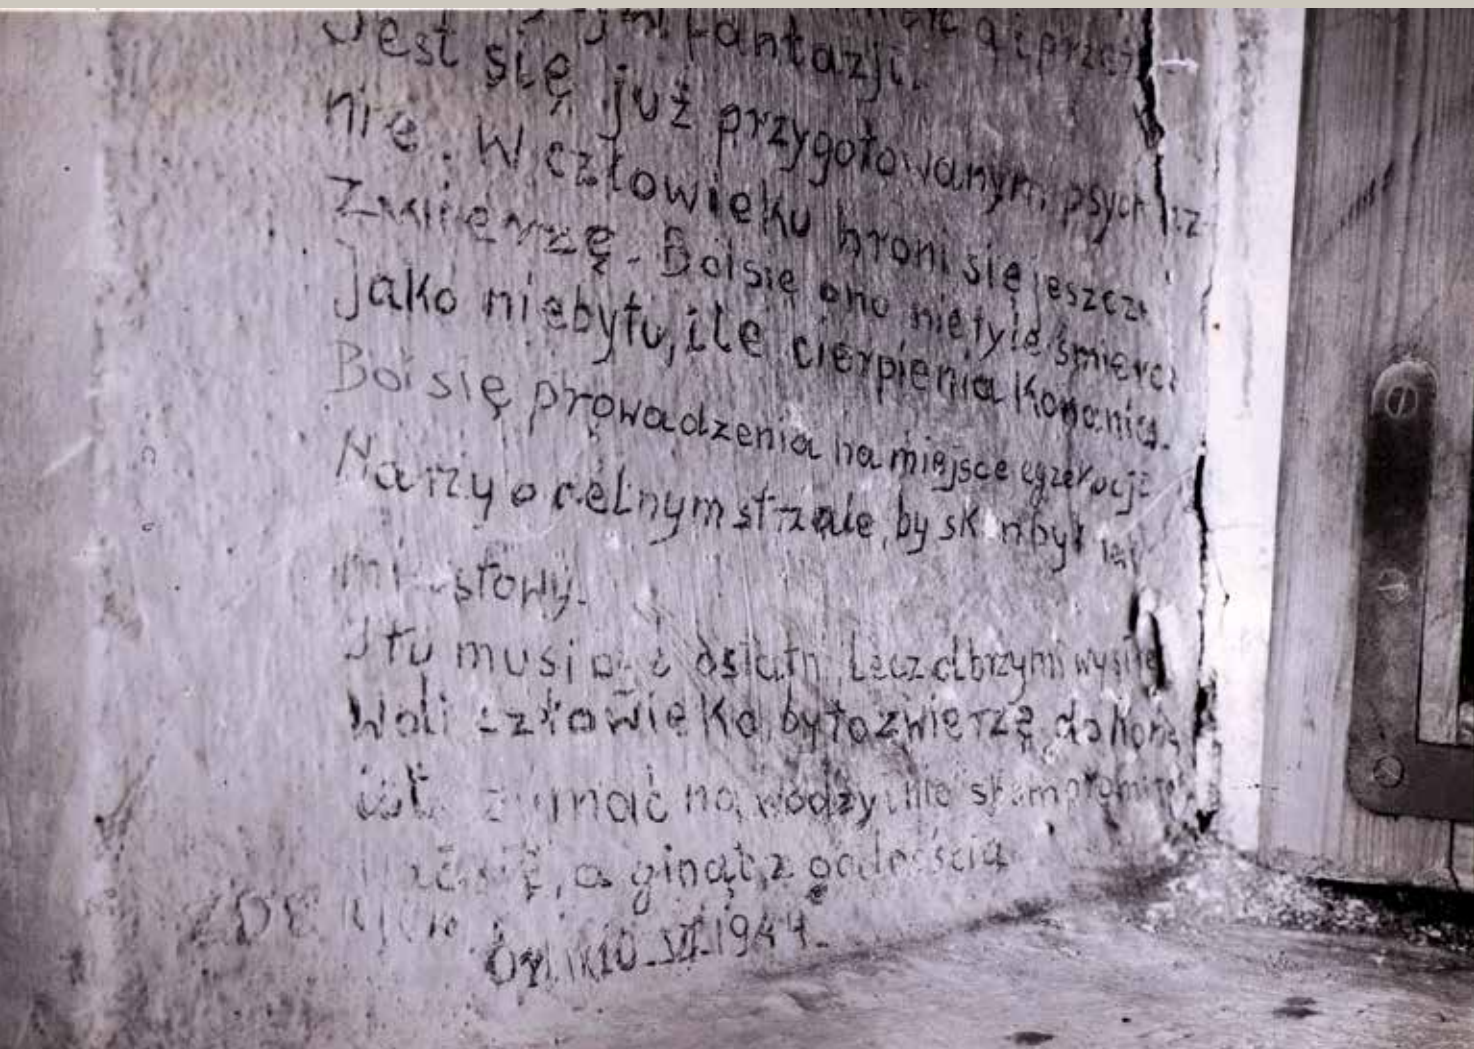 fantazji.
Jest się już przygotowanym psych icz-
nie. W człowieku broni się jeszcze
Zwierzę. Boi się ono nie tyle śmierci
jako niebytu, ile cierpienia konania.
Boi się prowadzenia na miejsce egzekucji
Marzy o celnym strzale, by skon był
I tu musi ostatn Lecz olbrzymi wysiłe
Woli człowieka, by to zwierzę do końca
na wodzy i nie
się, a ginąć z godnością
10.VI.1944.